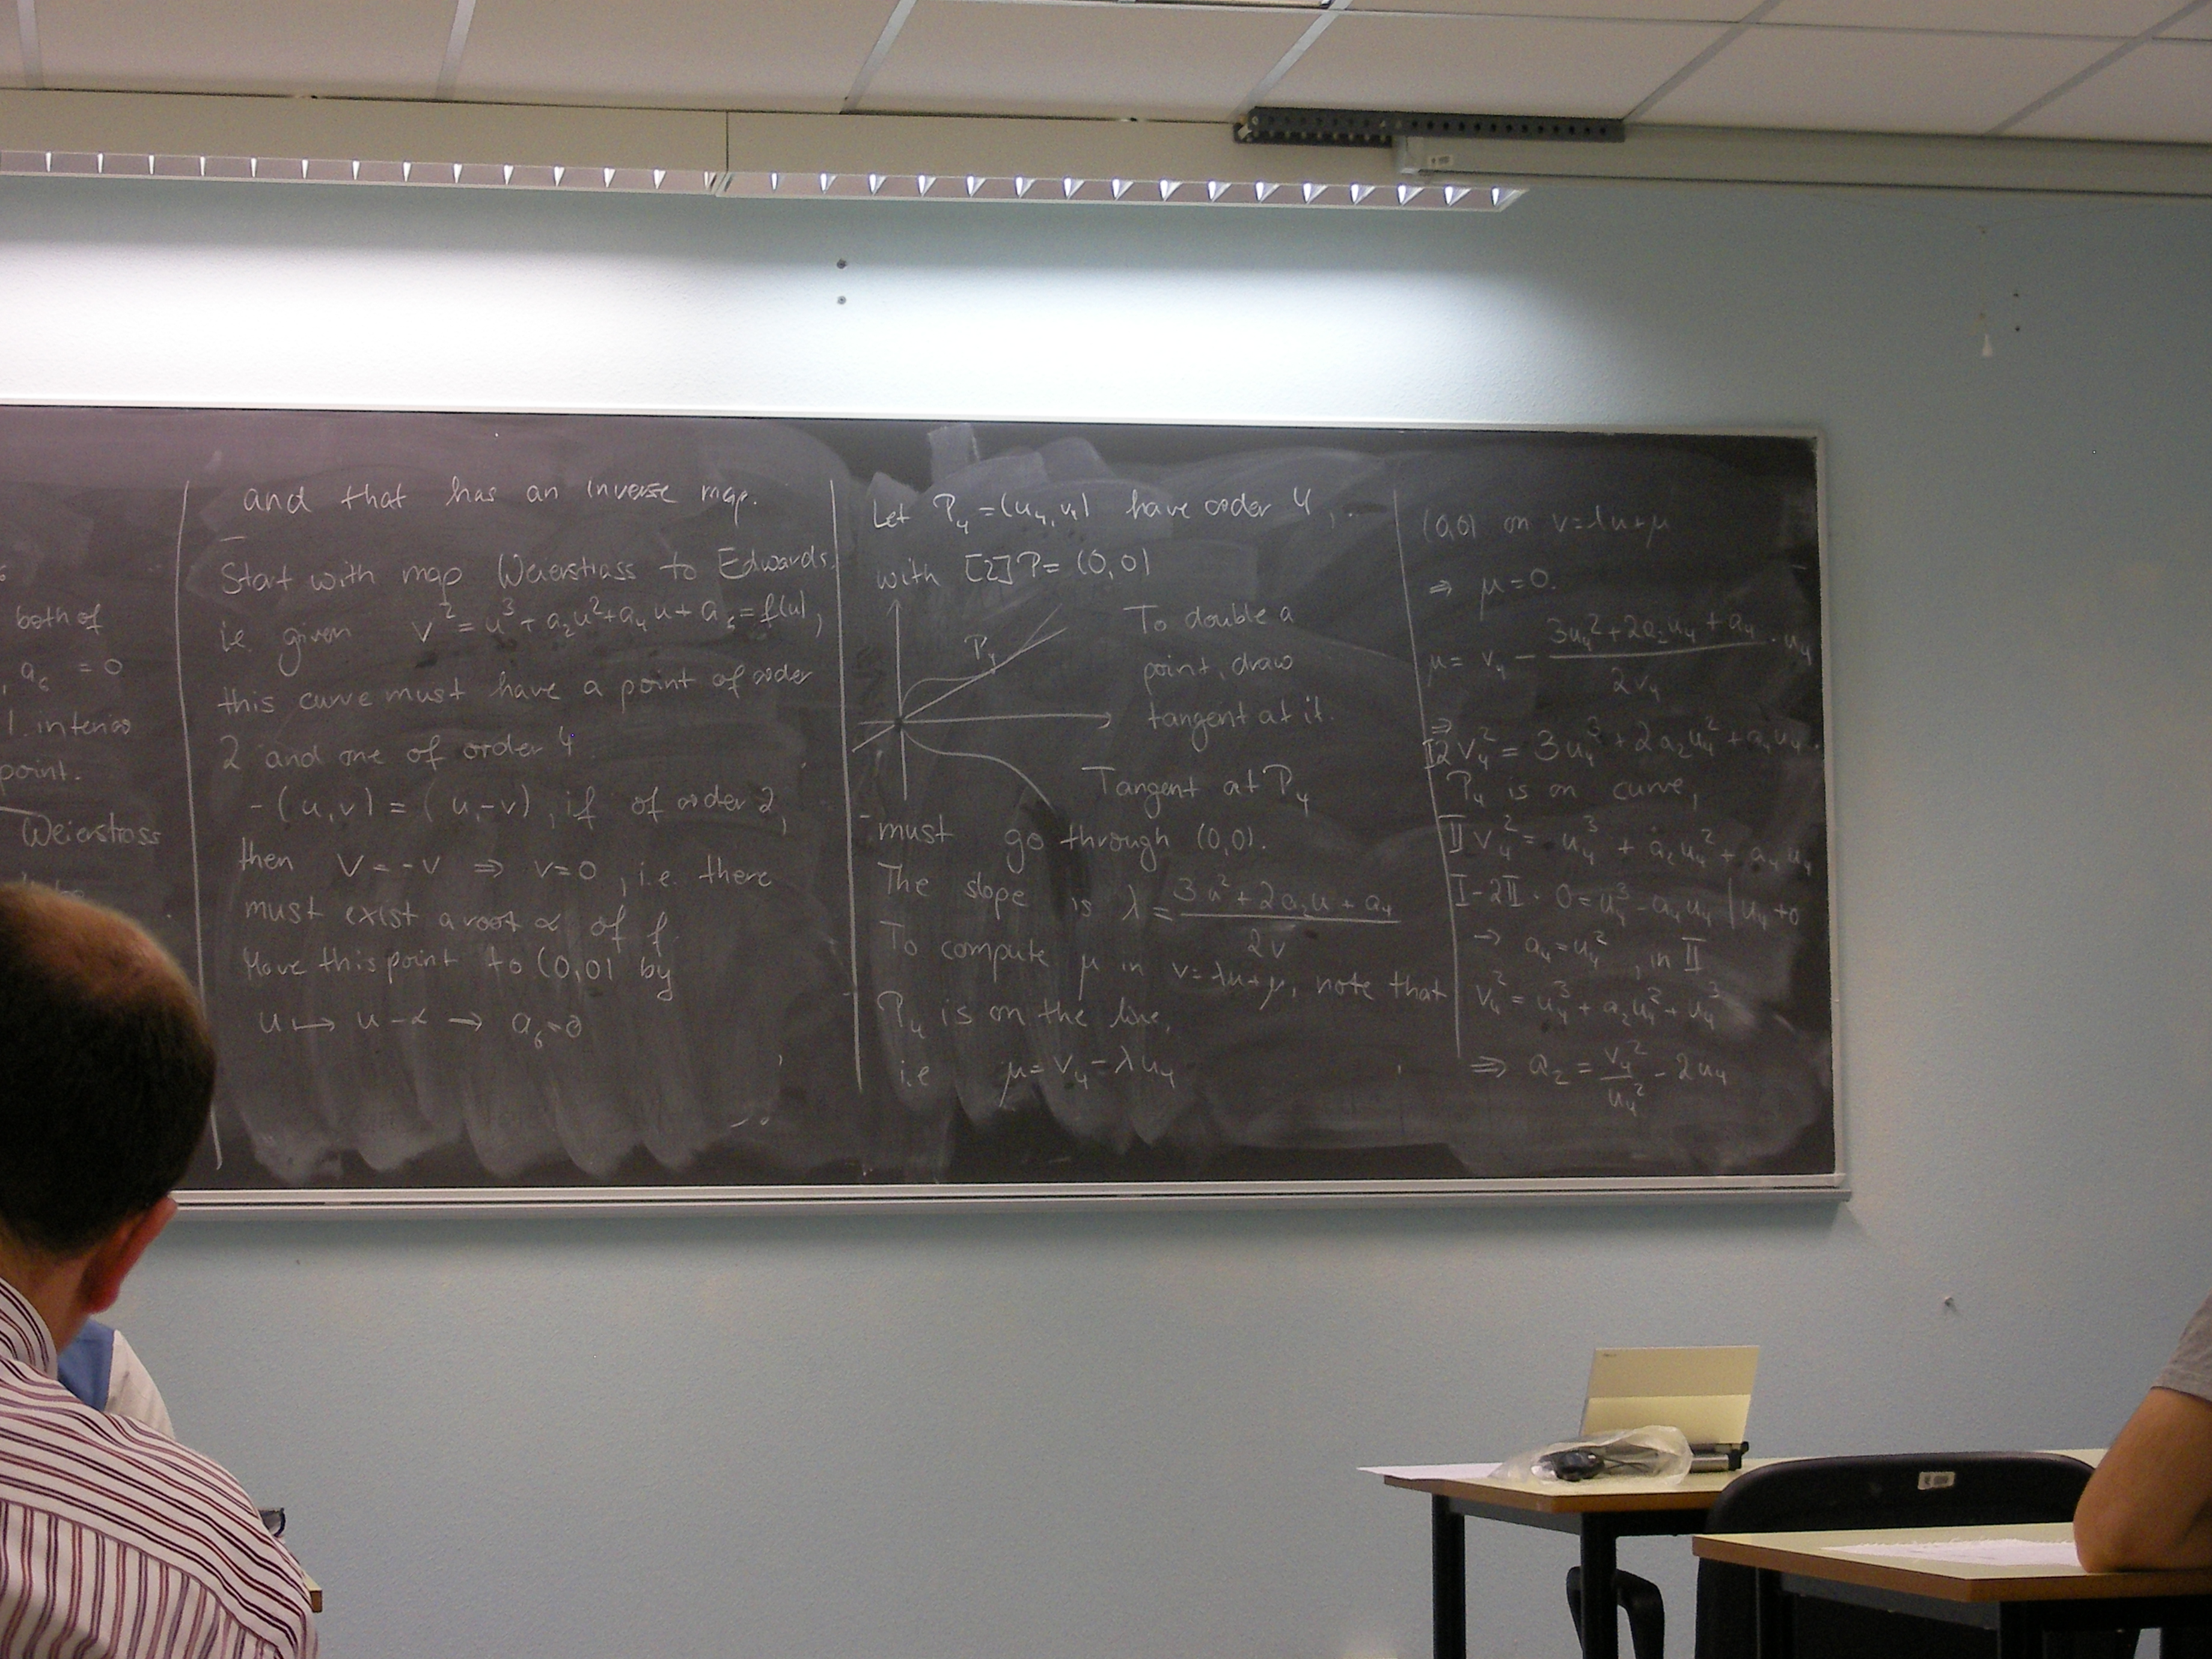 both of
, a₆ = 0
1. interior
point.
Weierstrass
and that has an inverse map.
Start with map Weierstrass to Edwards,
i.e. given v² = u³ + a₂u² + a₄u + a₆ = f(u),
this curve must have a point of order
2 and one of order 4
-(u,v) = (u,-v), if of order 2,
then v = -v ⇒ v=0, i.e. there
must exist a root α of f.
Move this point to (0,0) by
u ↦ u-α → a₆=0
Let P₄ = (u₄, v₄) have order 4,
with [2]P = (0,0)
P₄
To double a
point, draw
tangent at it.
Tangent at P₄
must go through (0,0).
The slope is λ = (3u² + 2a₂u + a₄)/(2v)
To compute μ in v=λu+μ, note that
P₄ is on the line,
i.e μ = v₄ - λu₄
(0,0) on v=λu+μ
⇒ μ=0.
μ = v₄ - (3u₄² + 2a₂u₄ + a₄)/(2v₄) · u₄
⇒
I 2v₄² = 3u₄³ + 2a₂u₄² + a₄u₄.
P₄ is on curve,
II v₄² = u₄³ + a₂u₄² + a₄u₄
I-2II: 0 = u₄³ - a₄u₄ | u₄≠0
→ a₄ = u₄², in II
v₄² = u₄³ + a₂u₄² + u₄³
⇒ a₂ = v₄²/u₄² - 2u₄